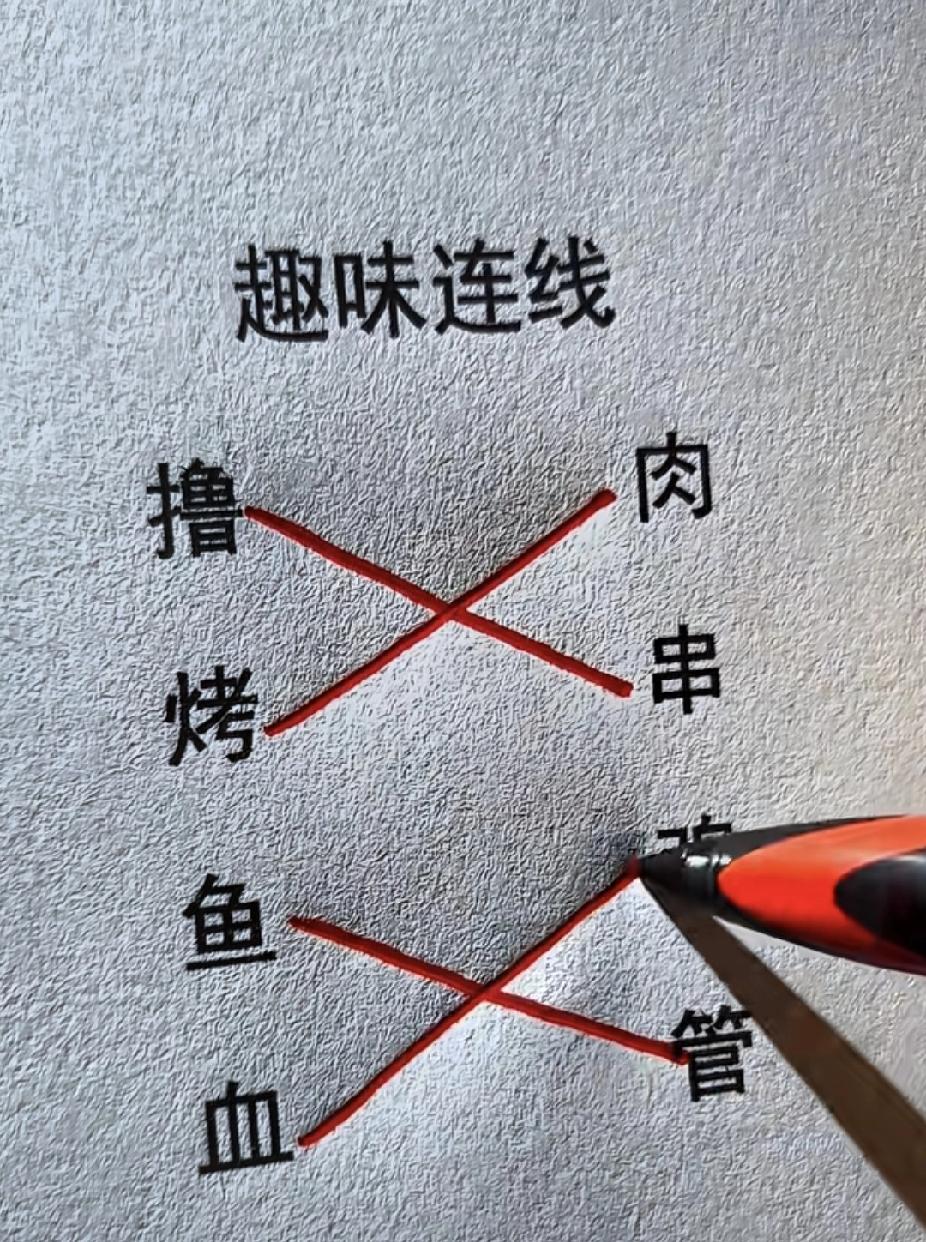 趣味连线
撸 肉
烤 串
鱼
血 管